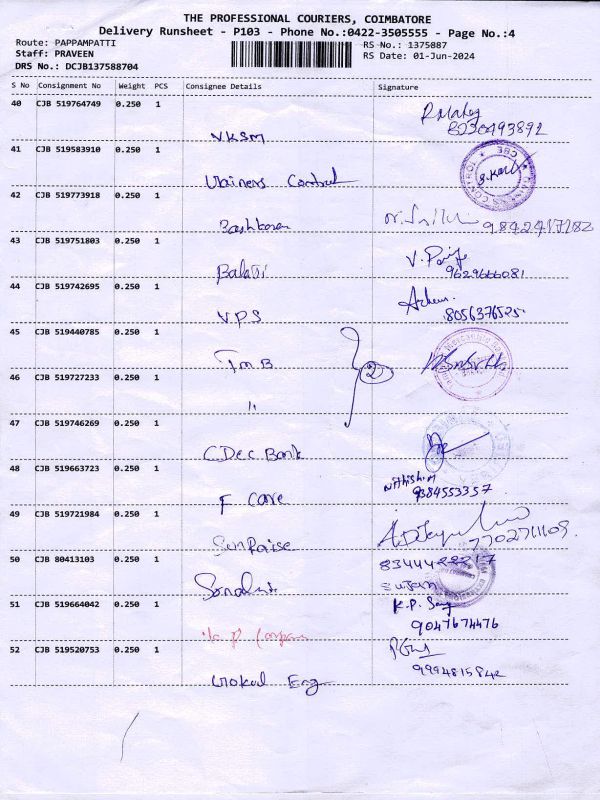 THE PROFESSIONAL COURIERS, COIMBATORE
Delivery Runsheet - P103 - Phone No.:0422-3505555 - Page No.:4
Route: PAPPAMPATTI
RS No.: 1375887
Staff: PRAVEEN
RS Date: 01-Jun-2024
DRS No.: DCJB137588704
S No Consignment No Weight PCS Consignee Details Signature
40 CJB 519764749 0.250 1
VKSM
41 CJB 519583910 0.250 1
CBE
42 CJB 519773918 0.250 1
9842417282
43 CJB 519751803 0.250 1
Balaji V.
9629666081
44 CJB 519742695 0.250 1
V.P.S 8056376525
45 CJB 519440785 0.250 1
T.M.B. 2
46 CJB 519727233 0.250 1
"
47 CJB 519746269 0.250 1
Bank
48 CJB 519663723 0.250 1 Nithish.M
F Care 9384553357
49 CJB 519721984 0.250 1
SunRaise 7702711109.
50 CJB 80413103 0.250 1
Sujan
51 CJB 519664042 0.250 1 K.P.
9047674476
52 CJB 519520753 0.250 1
9994815842
Gokul Eng